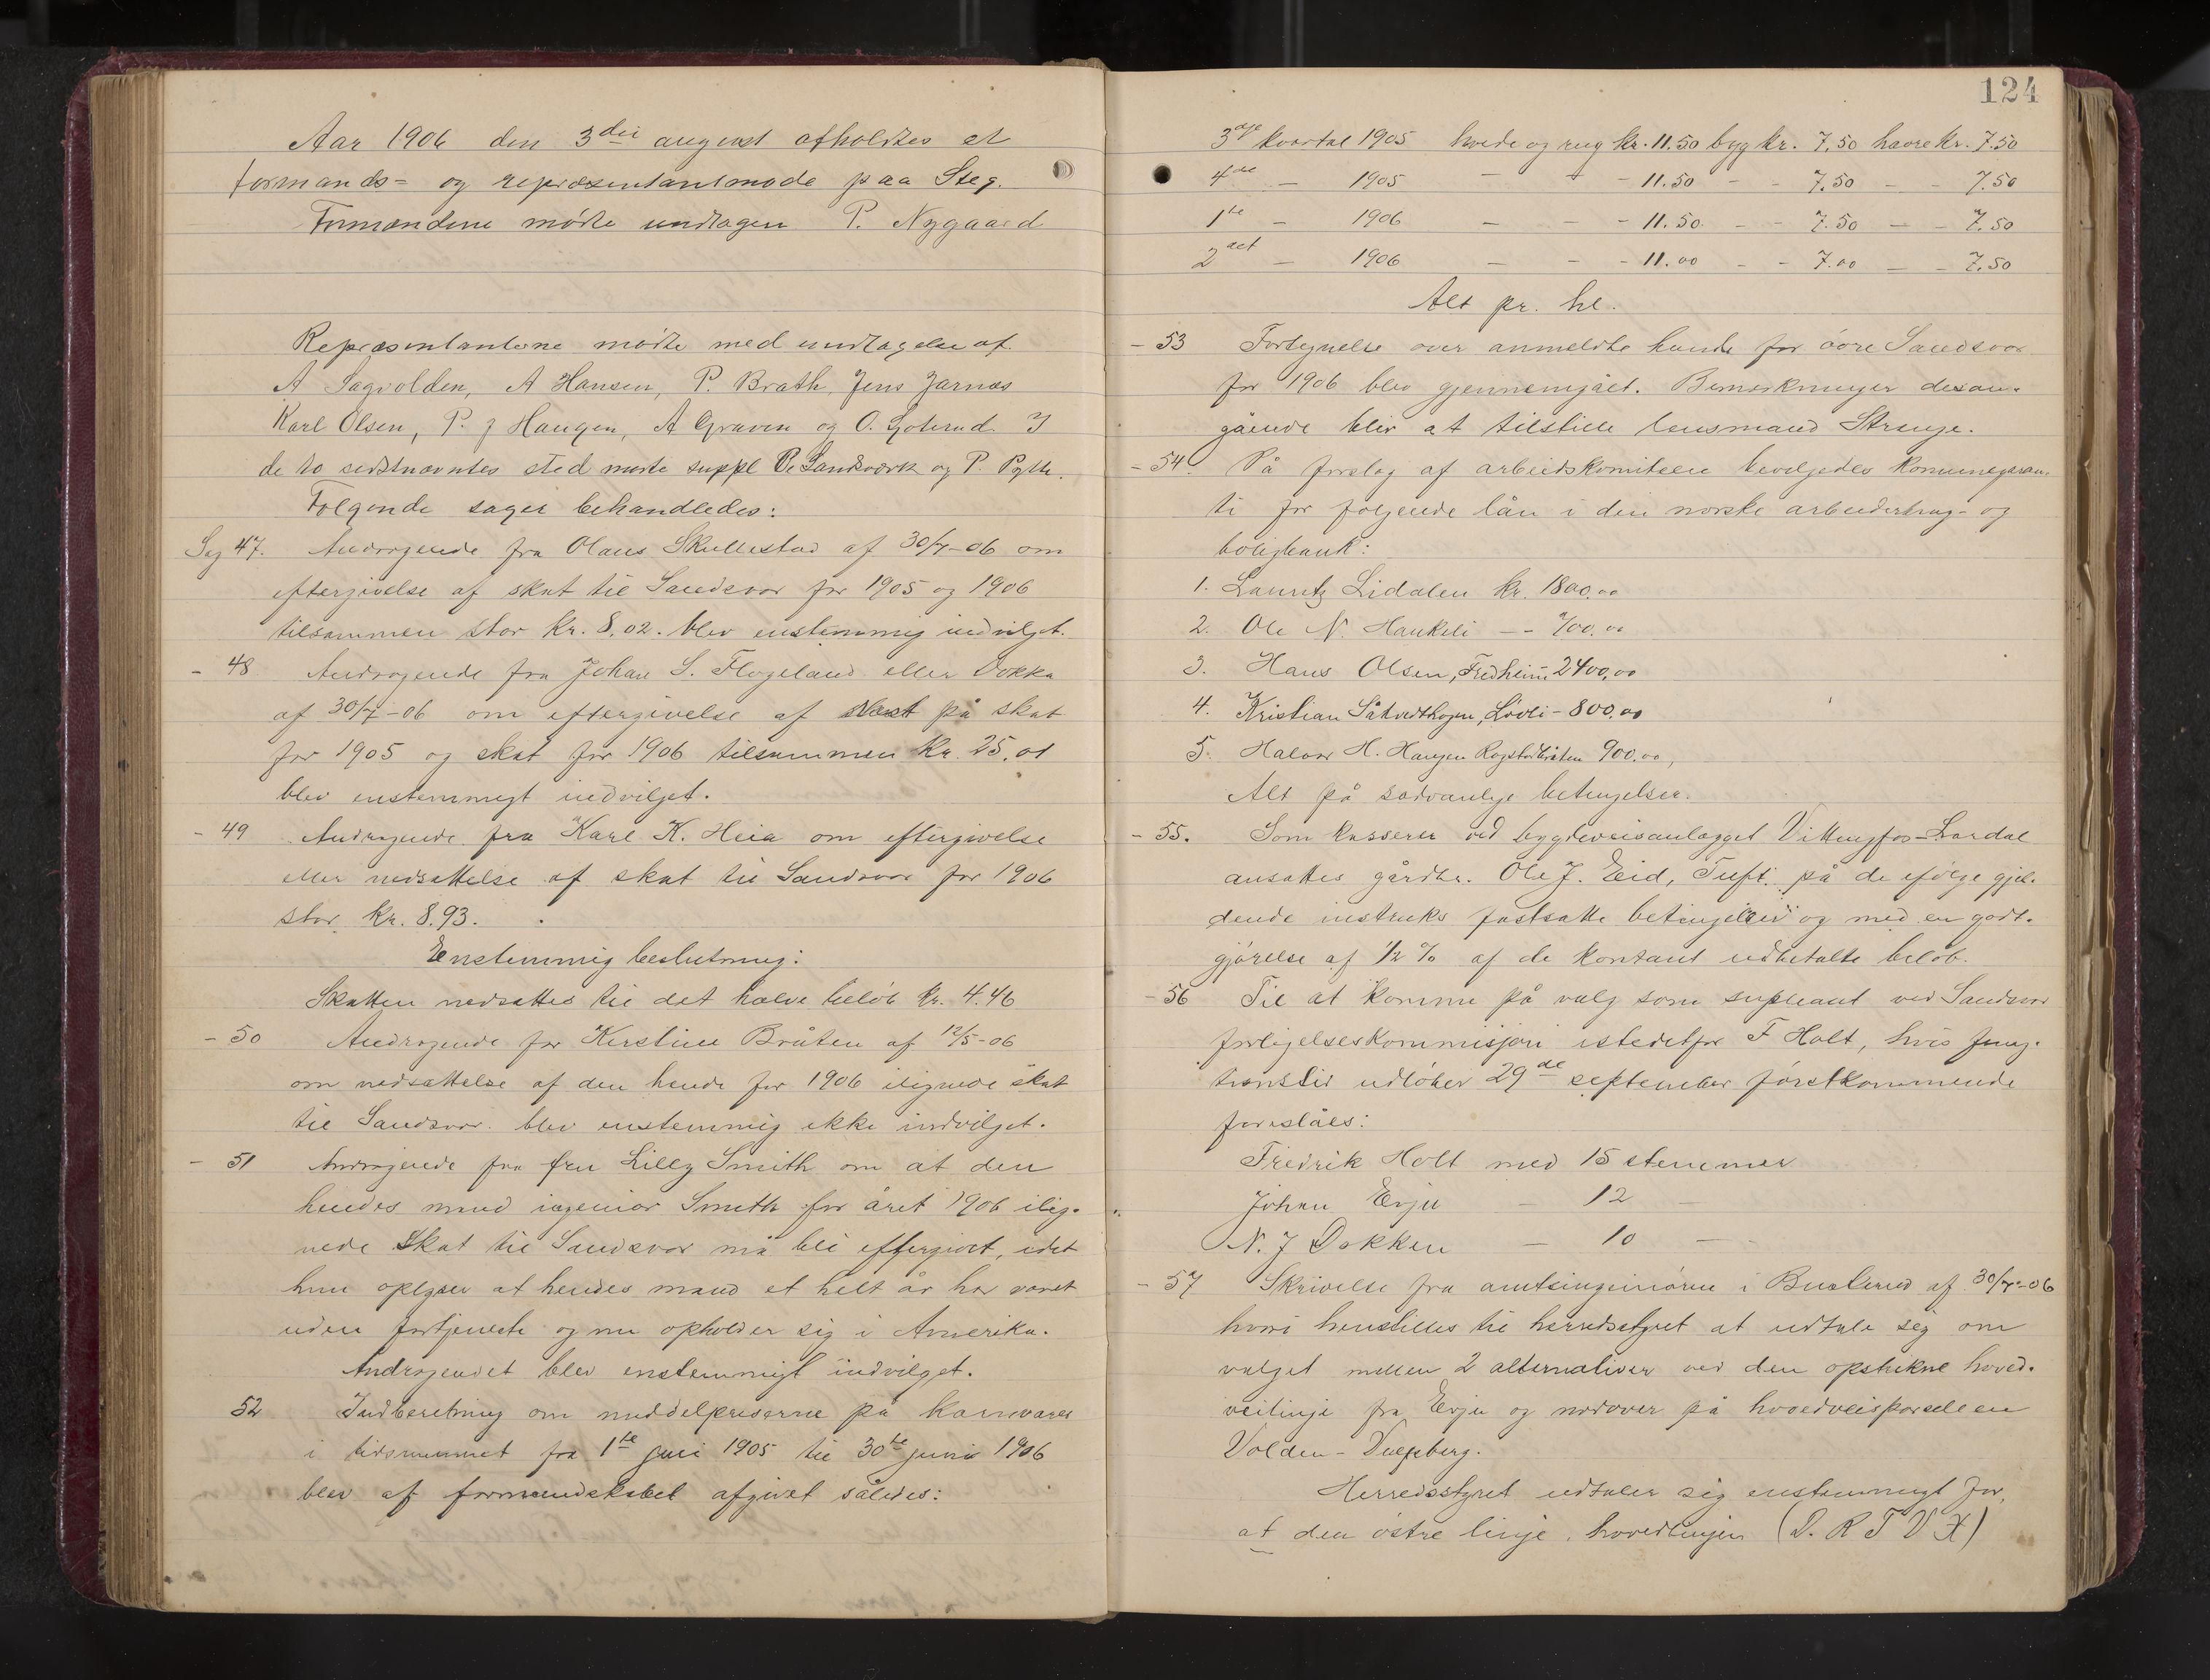 Aar 1906 den 3die august afholdtes et
formands- og repræsentantmøde paa Steg.
Formændene mødte undtagen P. Nygaard
Repræsentanterne mødte med undtagelse af
A Sagvolden, A Hansen, P. Brath, Jens Jarnæs
Karl Olsen, P. J Haugen, A Graven og O. Goterud. I
de to sidstnævntes sted mødte suppl P. Sandsværk og P. Pytte.
Følgende sager behandledes:
Sag 47. Andragende fra Olaus Skullestad af 30/7-06 om
eftergivelse af skat til Sandsvær for 1905 og 1906
tilsammen stor kr. 8,02. blev enstemmig indvilget.
- 48 Andragende fra Johan S. Flogeland eller Dokka
af 30/7-06 om eftergivelse af rest på skat
for 1905 og skat for 1906 tilsammen kr. 25,01
blev enstemmigt indvilget.
- 49 Andragende fra Karl K. Heia om eftergivelse
eller nedsættelse af skat til Sandsvær for 1906
stor kr. 8.93.
Enstemmig beslutning:
Skatten nedsættes til det halve beløb kr. 4.46
- 50 Andragende for Kirstine Bråten af 12/5-06
om nedsættelse af den hende for 1906 ilignede skat
til Sandsvær. blev enstemmig ikke indvilget.
- 51 Andragende fra fru Lilly Smith om at den
hendes mand ingeniør Smith for året 1906 ilig-
nede skat til Sandsvær må bli eftergivet, idet
hun oplyser at hendes mand et helt år har været
uden fortjeneste og nu opholder sig i Amerika.
Andragendet blev enstemmigt indvilget.
52 Indberetning om middelpriserne på kornvarer
i tidsrummet fra 1te juli 1905 til 30te juni 1906
blev af formandskabet afgivet således:
124
3die kvartal 1905 hvede og rug kr. 11.50 byg kr. 7.50 havre kr. 7.50
4de - 1905 - - - 11.50 - - 7.50 - - 7.50
1te - 1906 - - - 11.50 - - 7.50 - - 7.50
2det - 1906 - - - 11.00 - - 7.00 - - 7.50
Alt pr. hl.
- 53 Fortegnelse over anmeldte hunde for øvre Sandsvær
for 1906 blev gjennemgået. Bemærkninger desan-
gående blir at tilstille lensmand Strange.
- 54. På forslag af arbeidskomiteen bevilgedes kommunegaran-
ti for følgende lån i den norske arbeiderbrug- og
boligbank:
1. Lauritz Lidalen kr. 1800.00
2. Ole N. Haukeli - - 700.00
3. Hans Olsen, Fredheim 2400,00
4. Kristian Såtvedthagen, Løvli - 800.00
5. Halvor H. Haugen Rogstadbråten 900.00,
Alt på sædvanlige betingelser.
- 55. Som kasserer ved bygdeveisanlægget Vittingfos-Lardal
ansattes gårdbr. Ole J. Eid, Tuft på de ifølge gjæl-
dende instruks fastsatte betingelser og med en godt-
gjørelse af 1/2 % af de kontant udbetalte beløb.
- 56 Til at komme på valg som supleant ved Sandsvær
forligelseskommisjon istedetfor F Holt, hvis fung-
tionstid udløber 29de september førstkommende
foreslåes:
Fredrik Holt med 15 stemmer
Johan Evju - 12 -
N. J Dokken - 10 -
- 57 Skrivelse fra amtsingeniøren i Buskerud af 30/7-06
hvori henstilles til herredsstyret at udtale sig om
valget mellem 2 alternativer ved den opstukne hoved-
veilinje fra Evju og nordover på hovedveisparsellen
Volden-
Herredsstyret udtaler sig enstemmigt for,
at den østre linje, hovedlinjen (D. R T V X)